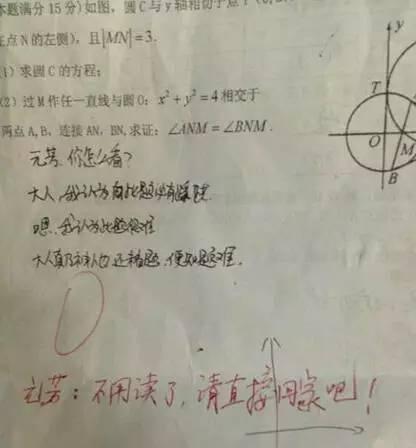 本题满分15分)如图,圆C与y轴相切于点T(0,
在点N的左侧),且|MN|=3.
(1)求圆C的方程;
(2)过M作任一直线与圆O:x²+y²=4相交于
两点A,B,连接AN,BN,求证:∠ANM=∠BNM.
y
T
O
M
B
元芳,你怎么看?
大人,我认为此题必有蹊跷
嗯,我认为此题很难
大人真乃神人也,还未看题,便知题难.
元芳:不用读了,请直接回家吧!